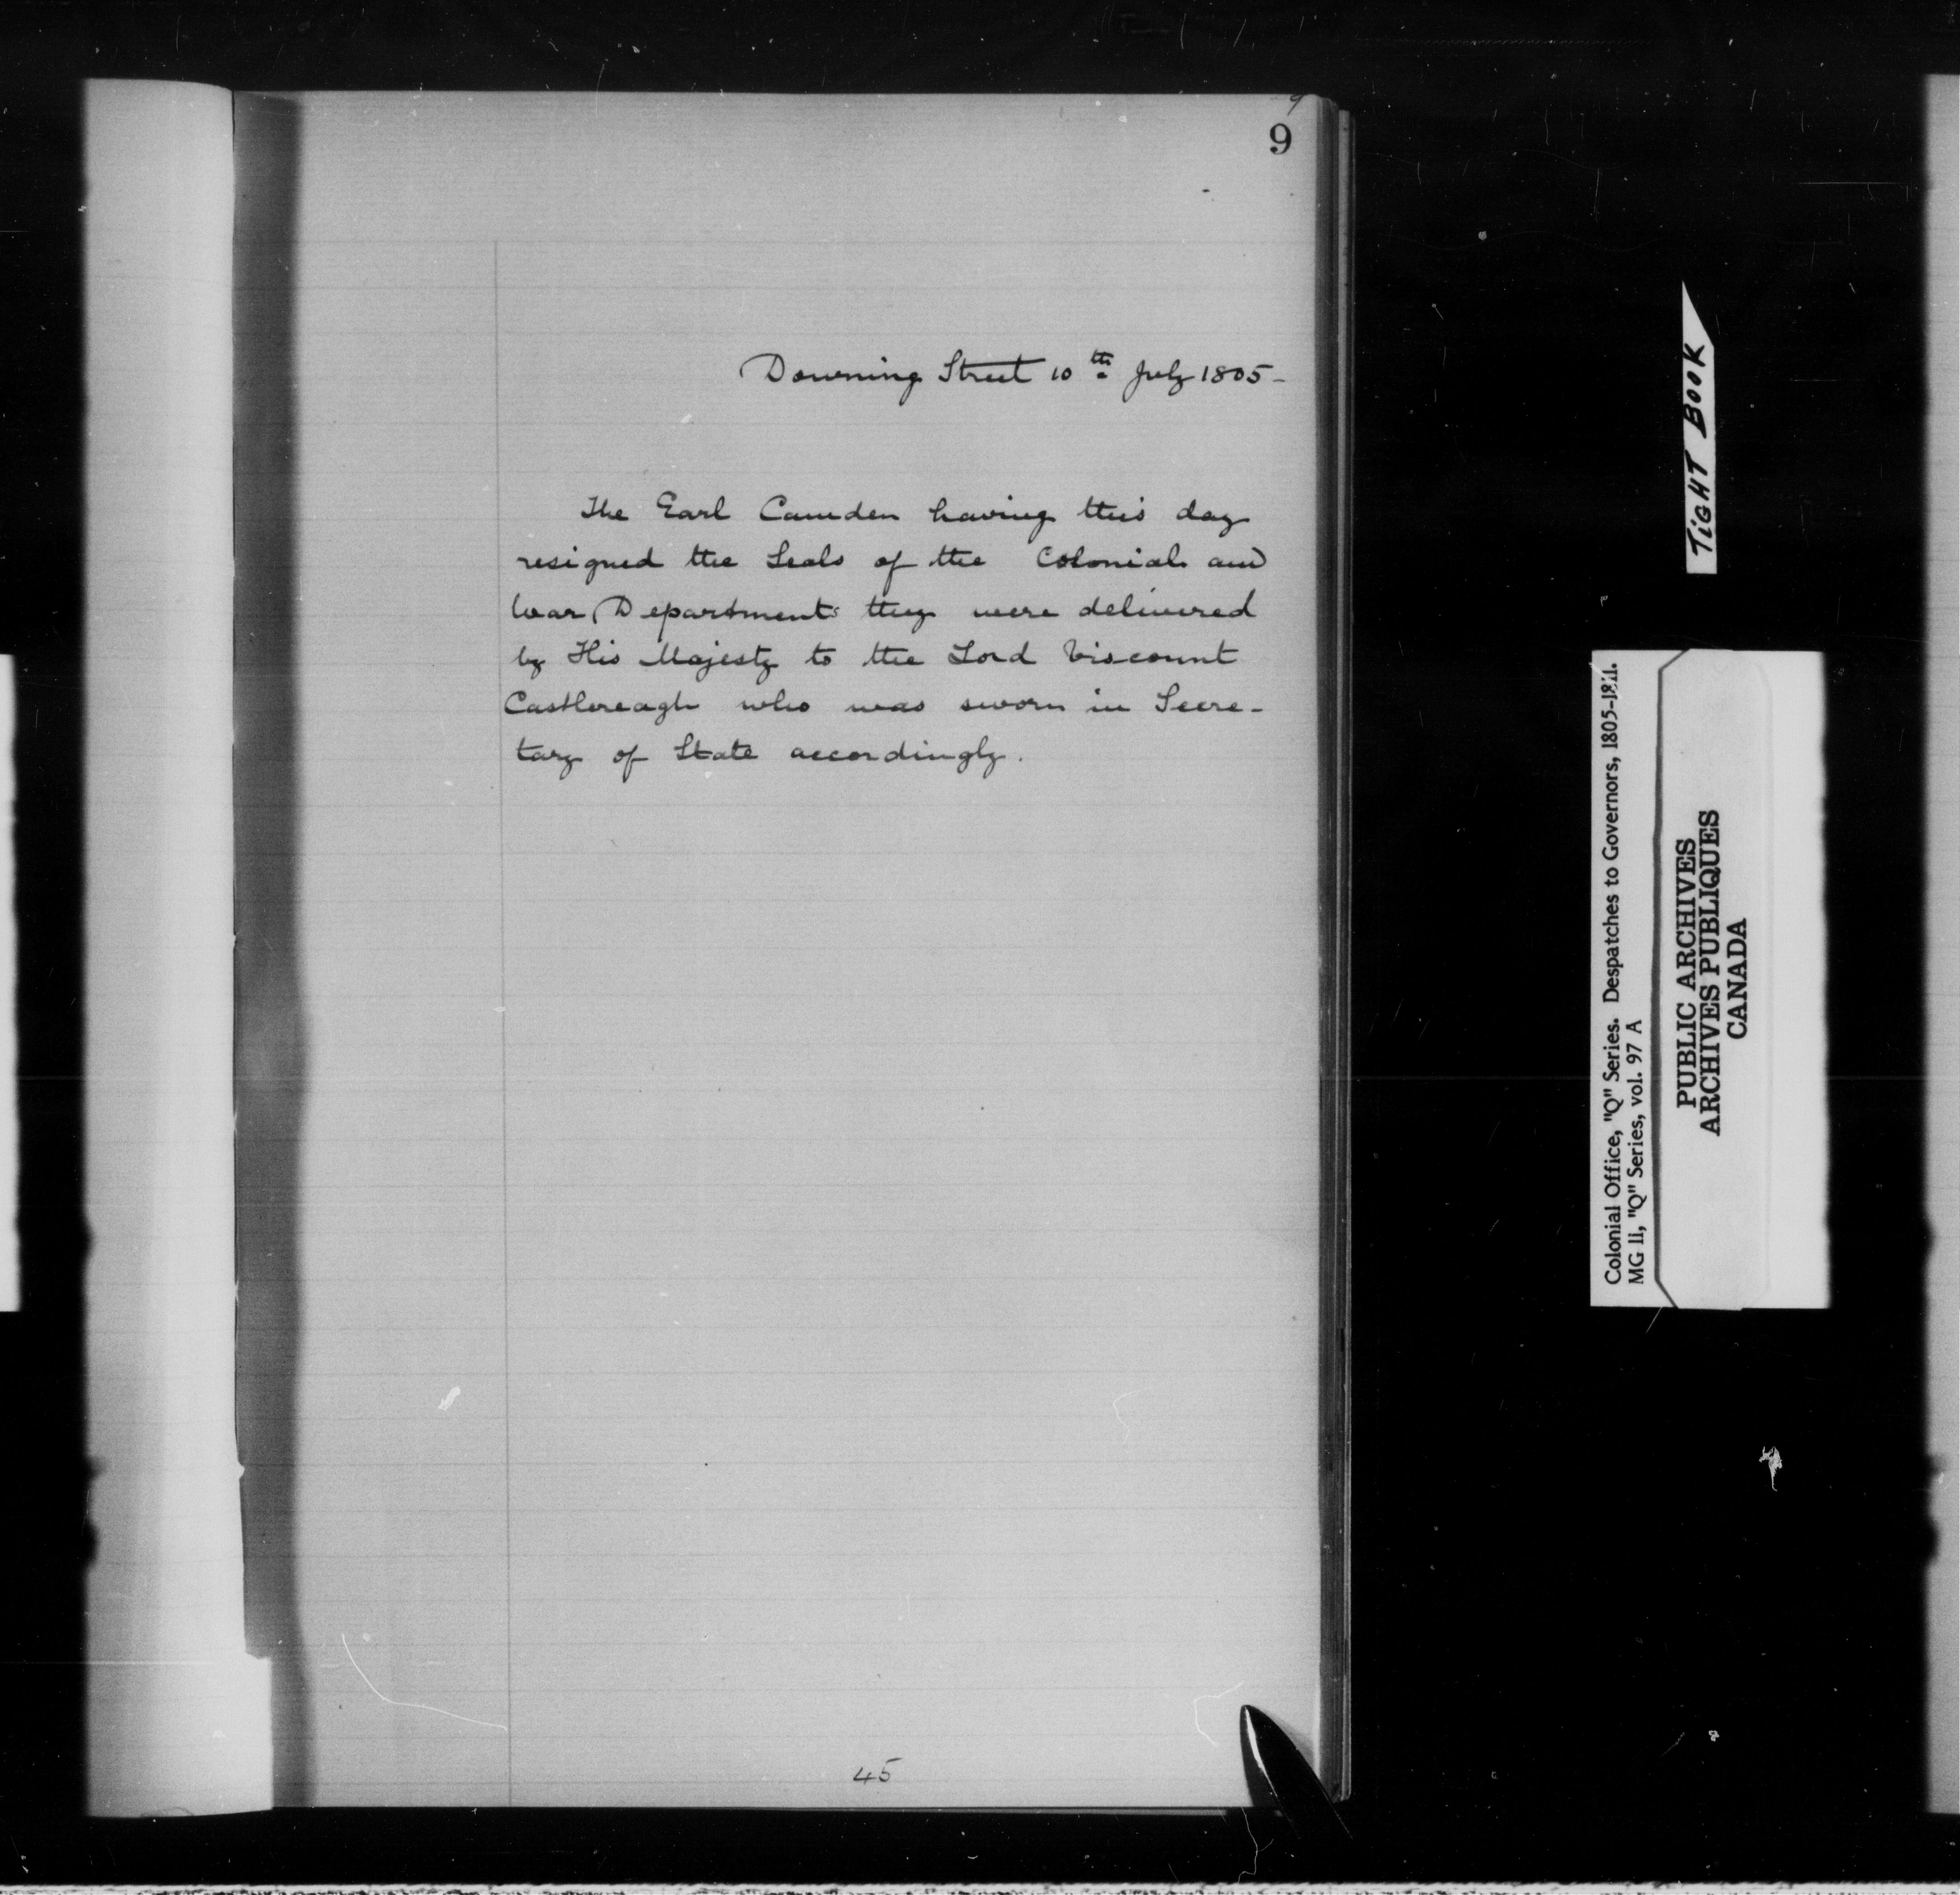 9
9
Downing Street 10th July 1805-
The Earl Camden having this day
resigned the Seals of the Colonial and
War Departments they were delivered
by His Majesty to the Lord Viscount
Castlereagh who was sworn in Secre-
tary of State accordingly.
45
TIGHT BOOK
Colonial Office, "Q" Series. Despatches to Governors, 1805-1811.
MG 11, "Q" Series, vol. 97 A
PUBLIC ARCHIVES
ARCHIVES PUBLIQUES
CANADA